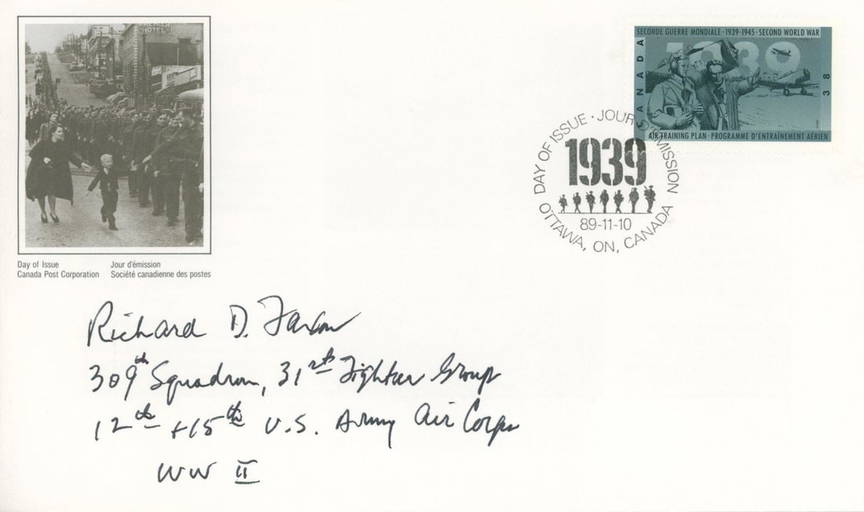 HOTEL
SECONDE GUERRE MONDIALE · 1939-1945 · SECOND WORLD WAR
CANADA
1939
38
AIR TRAINING PLAN · PROGRAMME D'ENTRAÎNEMENT AÉRIEN
DAY OF ISSUE · JOUR D'ÉMISSION
1939
89-11-10
OTTAWA, ON, CANADA
Day of Issue Jour d'émission
Canada Post Corporation Société canadienne des postes
Richard D. Faxon
309th Squadron, 31st Fighter Group
12th + 15th U.S. Army Air Corps
WW II